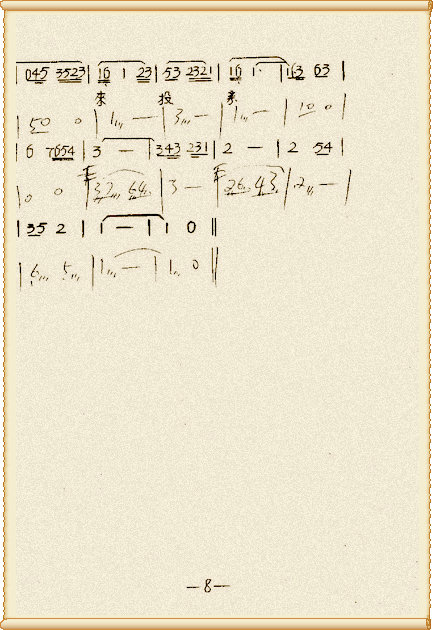 | 045 3523 | 16 1 23 | 53 2321 | 16 1· | 163 63 |
來 投
| 50 0 | 1 — | 3 — | 1 — | 10 0 |
| 6 7654 | 3 — | 343 231 | 2 — | 2 54 |
| 0 0 | 32 64 | 3 — | 26 43 | 2 — |
| 35 2 | 1 — | 1 0 ‖
| 6 5 | 1 — | 1 0 ‖
—8—